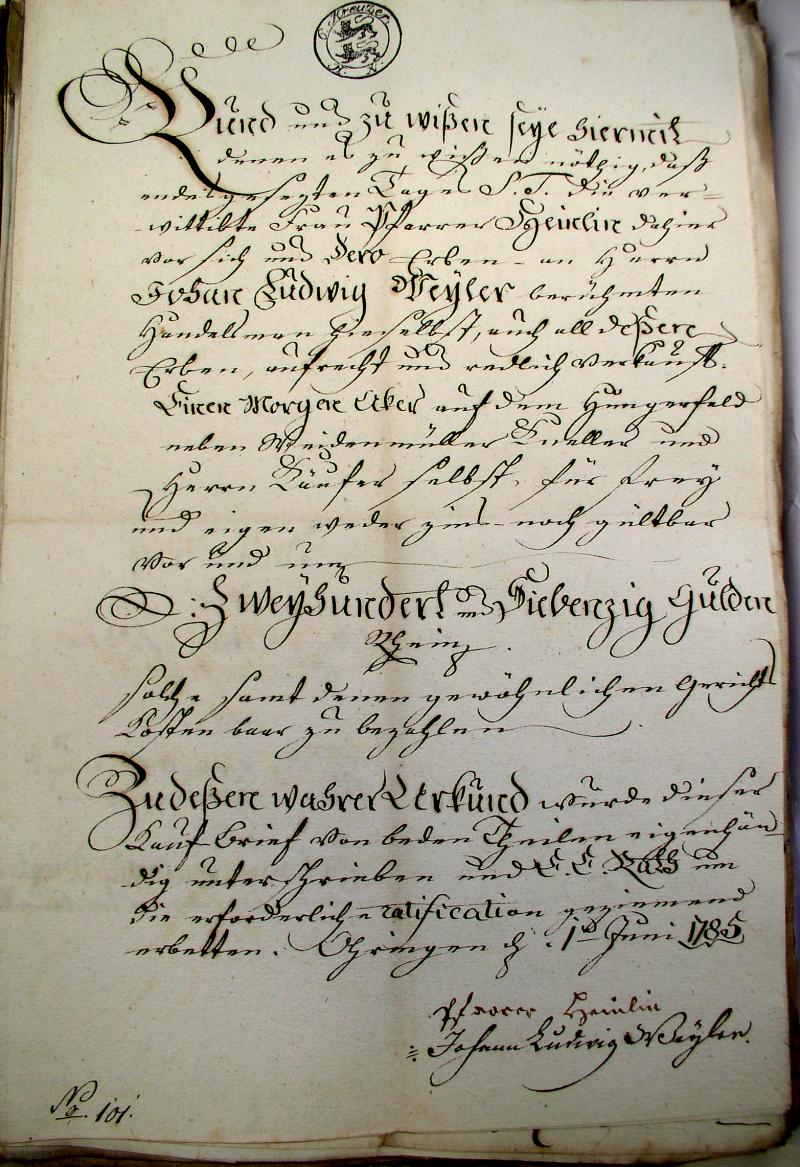 6. Kreuzer.
H. N.
Kund und zu wißen seye hiermit
denen es zu wißen nöthig, daß
endesgesezten Tages S. T. die ver=
wittibte Frau Pfarrer Heinlin dahier
vor sich und Dero Erben an Herrn
Johan Ludwig Weyler berühmten
Handelsman hieselbst, auch all deßen
Erben, aufrecht und redlich verkauft.
Einen Morgen Aker auf dem Hungerfeld
neben Weidenmüller und
Herrn Käufer selbst, für frey
und eigen weder zins- noch gültbar
vor und um
Zweyhundert und Siebenzig Gulden
Rhein.
solche samt denen gewöhnlichen Gerichts
Kosten baar zu bezahlen
Zu deßen wahrer Urkund wurde dieser
Kauf Brief von beden Theilen eigenhän
dig unterschrieben und E. E. Rath um
die erforderliche ratification geziemend
erbetten. Ohringen d. 1ten Juni 1785
Pfarrer Heinlin
Johann Ludwig Weyler.
No. 101.